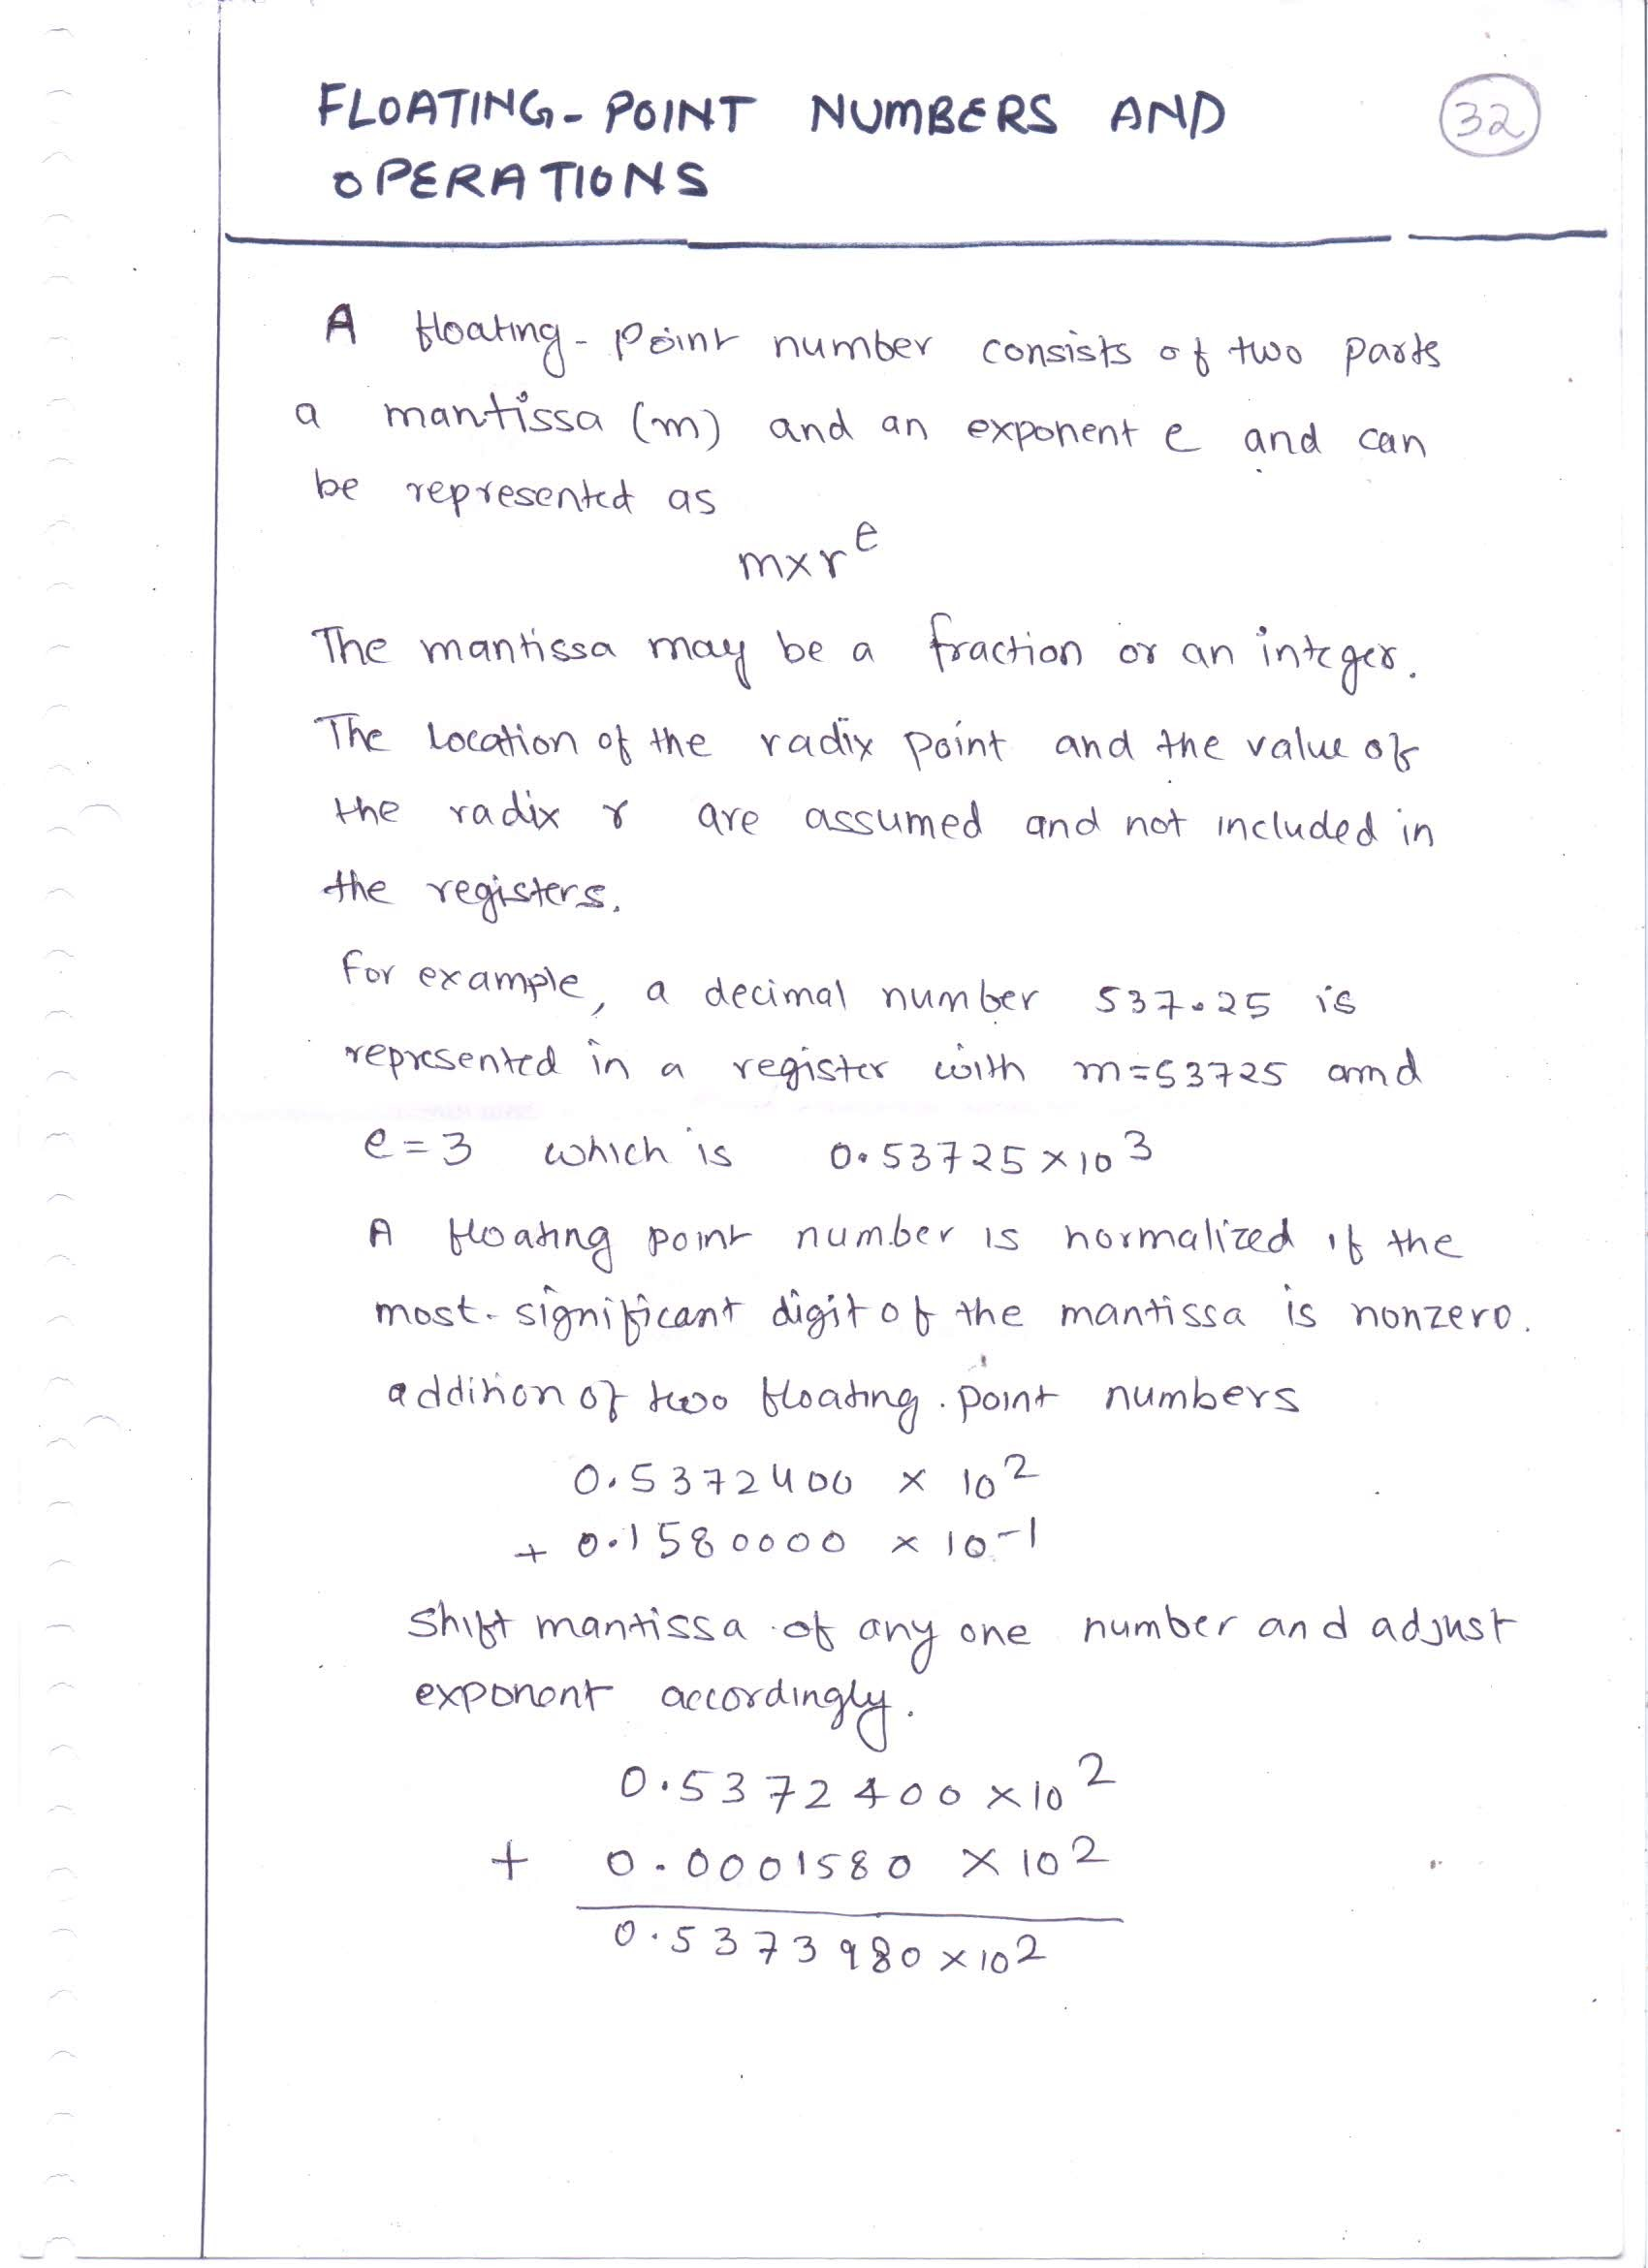 FLOATING-POINT NUMBERS AND
32
OPERATIONS
A floating-point number consists of two parts
a mantissa (m) and an exponent e and can
be represented as
m×r^e
The mantissa may be a fraction or an integer.
The location of the radix point and the value of
the radix r are assumed and not included in
the registers.
For example, a decimal number 537.25 is
represented in a register with m=53725 and
e=3 which is 0.53725×10^3
A floating point number is normalized if the
most-significant digit of the mantissa is nonzero.
addition of two floating.point numbers
0.5372400 × 10^2
+ 0.1580000 × 10^-1
Shift mantissa of any one number and adjust
exponent accordingly.
0.5372400 ×10^2
+ 0.0001580 ×10^2
0.5373980×10^2